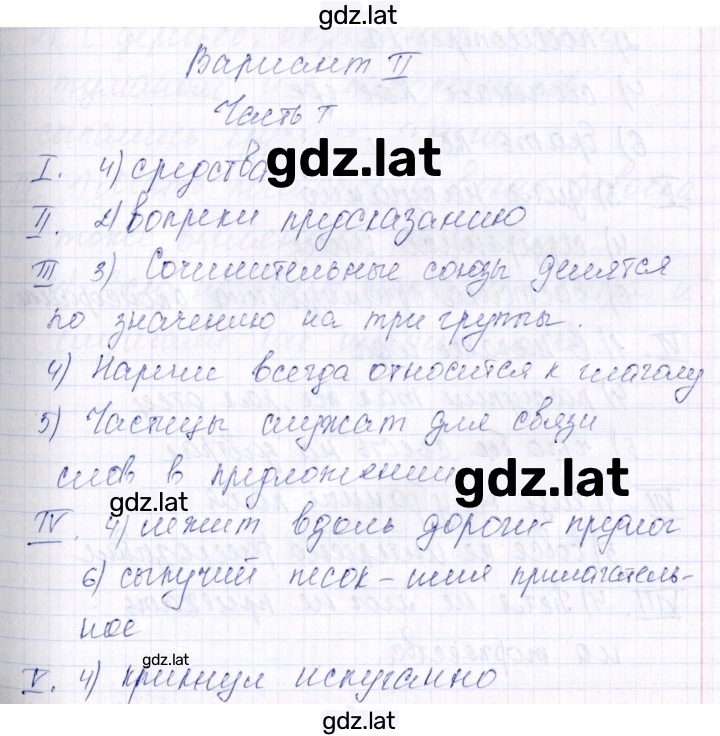 gdz.lat
Вариант II
Часть I
I. 4) средства
gdz.lat
II. 2) вопреки предсказанию
III 3) Сочинительные союзы делятся
по значению на три группы.
4) Наречие всегда относится к глаголу
5) Частицы служат для связи
слов в предложении
gdz.lat
gdz.lat
IV. 4) лежит вдоль дороги - предлог
6) сыпучий песок - имя прилагатель-
ное
gdz.lat
V. 4) крикнул испуганно
gdz.lat